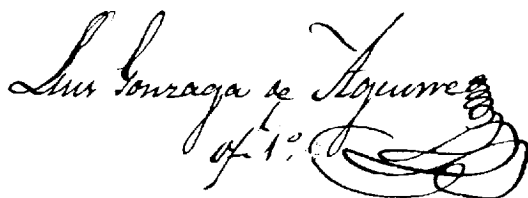 Luis Gonzaga de Aguirre
of. 1º.